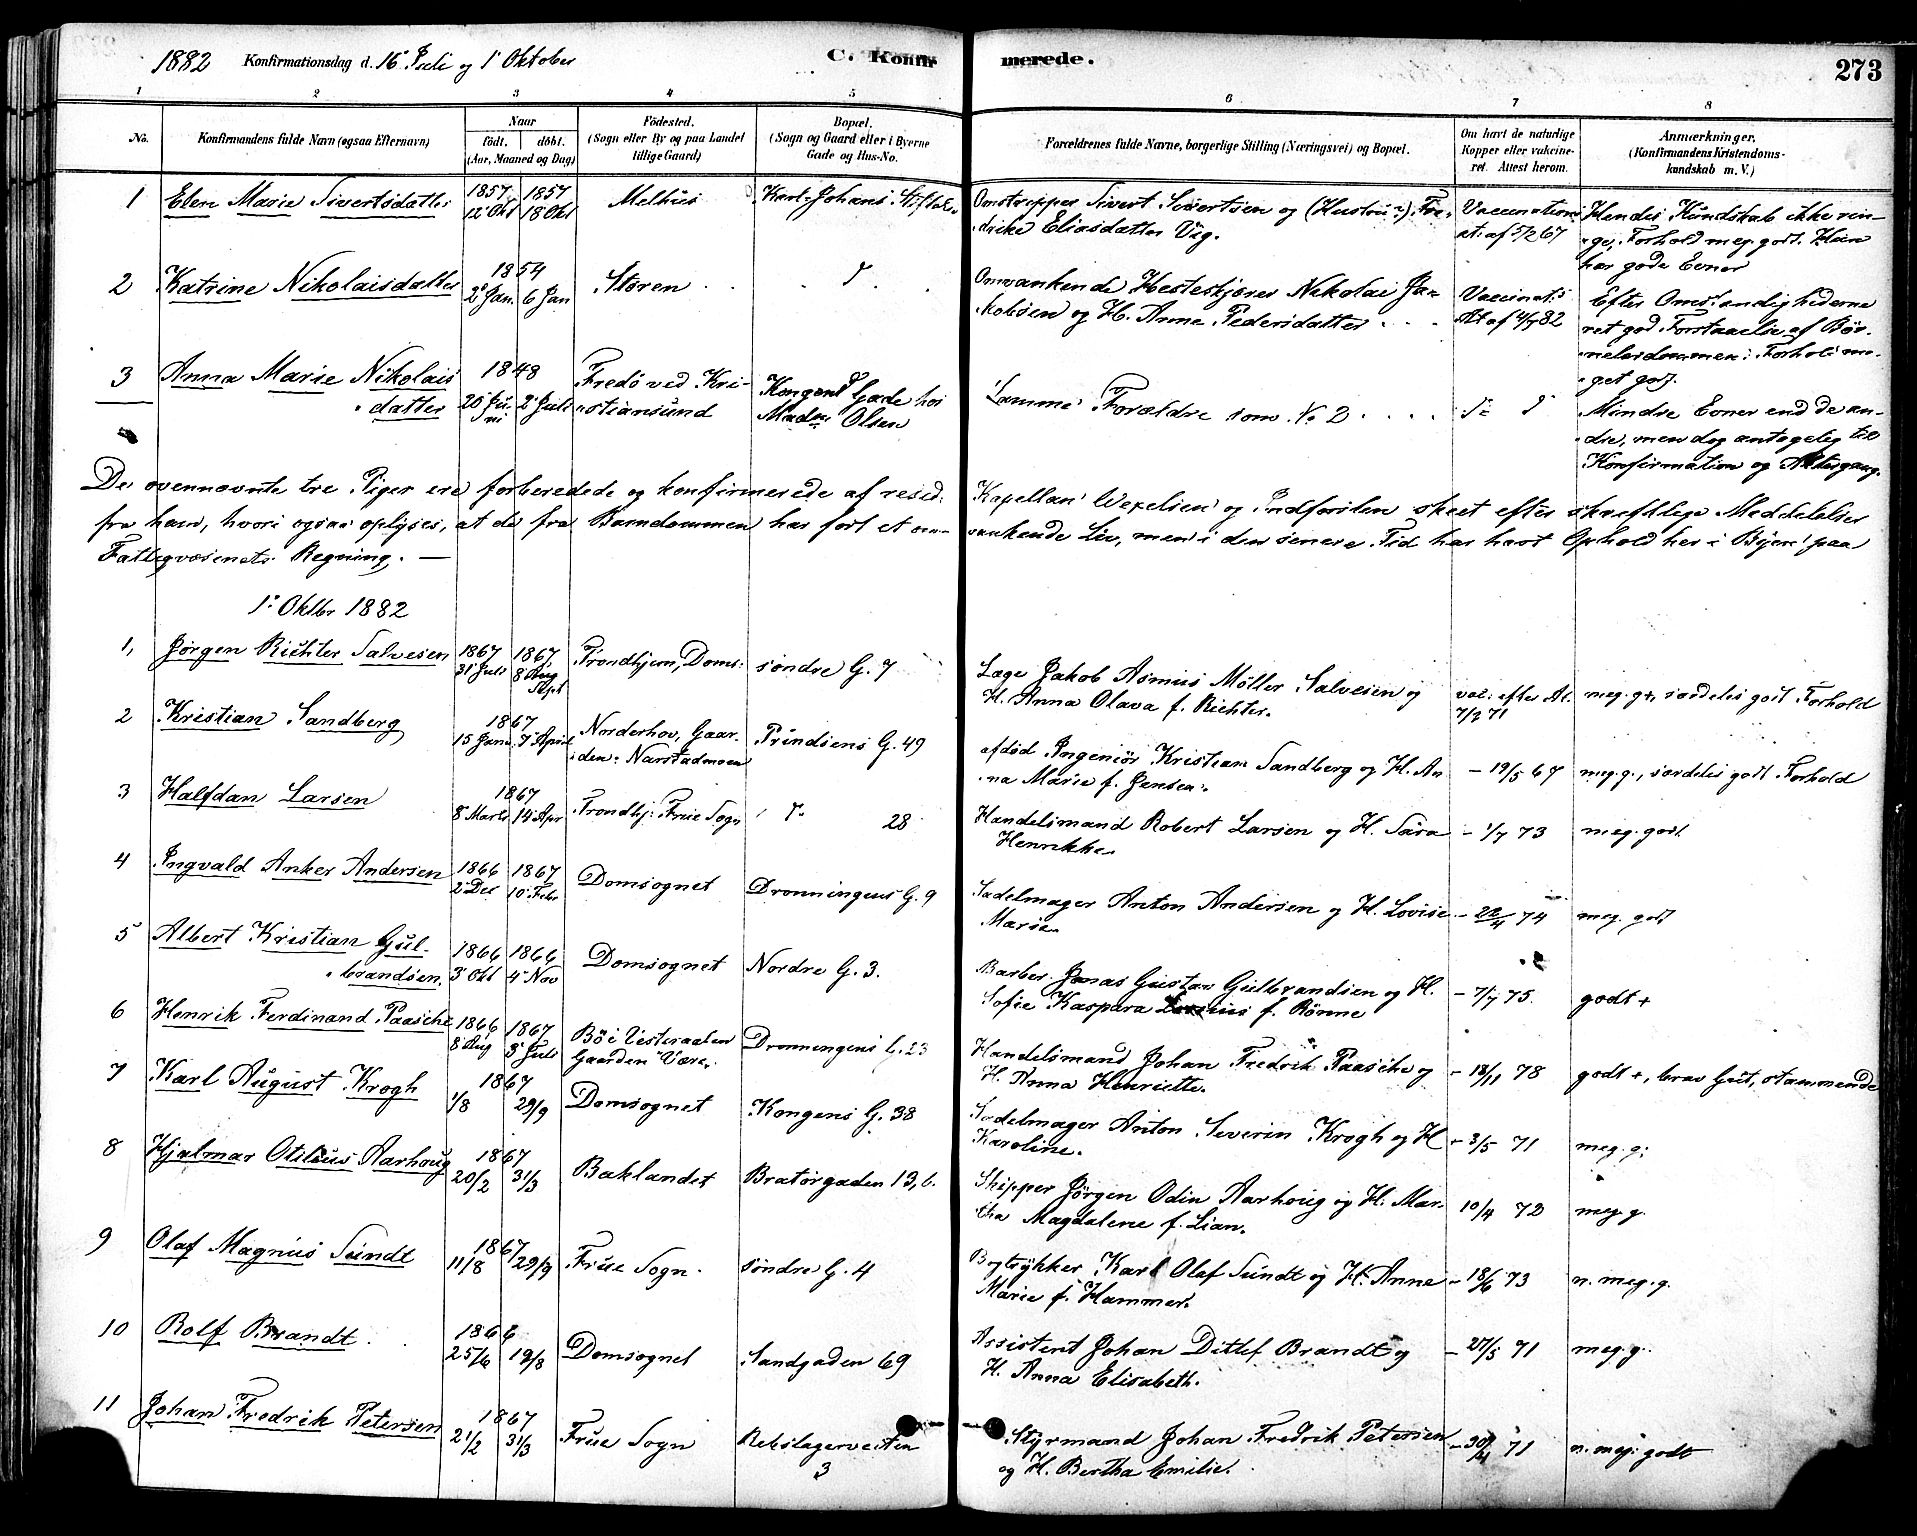 1882 Konfirmationsdag d. 16 Juli og 1 Oktober C. Konfirmerede. 273
1 2 3 4 5 6 7 8
No. Konfirmandens fulde Navn (ogsaa Efternavn) Naar født. døbt. (Aar, Maaned og Dag) Fødested. (Sogn eller By og paa Landet tillige Gaard) Bopæl. (Sogn og Gaard eller i Byerne Gade og Hus-No. Forældrenes fulde Navne, borgerlige Stilling (Næringsvei) og Bopæl. Om havt de naturlige Kopper eller vakcineret. Attest herom. Anmærkninger, (Konfirmandens Kristendomskundskab m. V.)
1 Elen Marie Sivertsdatter 1857 12 Okt 1857 18 Okt Melhus Karl Johans Stiftelse Omstripper Sivert Sivertsen og (Hustru?) Fredrike Eliasdatter Vig. Vaccinations at. af 5/2 67 Hendes Kundskab ikke ringe, Forhold meg. godt. Hun har gode Evner
2 Katrine Nikolaisdatter 1854 2 Jan. 6 Jan Støren Omvankende Hesteskjærer Nikolai Jakobsen og H. Anne Pedersdatter Vaccinats At af 4/7 82 Efter Omstændighederne ret god Forstaaelse af Børnelærdommen; Forhold meget godt.
3 Anna Marie Nikolaisdatter 1848 20 Juni 2 Juli Fredø ved Kristiansund Kongens Gade hos Mad. Olsen Samme Forældre som No 2 Mindre Evner end de andre, men dog antagelig til Konfirmation og Altergang.
De ovennævnte tre Piger ere forberedede og konfirmerede af resid. Kapellan Wexelsen og Indførslen skeet efter skriftlige Meddelelser
fra ham, hvori ogsaa oplyses, at de fra Barndommen har ført et omvankende Liv, men i den senere Tid har havt Ophold her i Byen paa
Fattigvæsenets Regning. —
1. Oktbr 1882
1, Jørgen Richter Salvesen 1867 31 Juli 1867 8 Sept Trondhjem, Doms: søndre G. 7 Læge Jakob Asmus Møller Salvesen og H. Anna Olava f. Richter. vac. efter At. 7/2 71 meg. g+, særdeles godt Forhold
2 Kristian Sandberg 1867 15 Jan. 7 April Norderhov, Gaarden Narstadmoen Prindsens G. 49 afdød Ingeniør Kristian Sandberg og H. Anna Marie f. Jensen. - 19/5 67 meg. g., særdeles godt Forhold
3 Halfdan Larsen 1867 8 Marts 14 Apr Trondhj. Frue Sogn 28 Handelsmand Robert Larsen og H. Sara Henrikke - 1/7 73 meg. godt
4 Ingvald Anker Andersen 1866 2 Dec 1867 10 Febr Domsognet Dronningens G. 9 Sadelmager Anton Andersen og H. Lovise Marie - 22/4 74 meg. godt
5 Albert Kristian Gulbrandsen 1866 3 Okt 1866 4 Nov Domsognet Nordre G. 3. Barber Jonas Gustav Gulbrandsen og H. Sofie Kaspara f. Rönne - 7/7 75. godt +
6 Henrik Ferdinand Paasche 1866 8 Aug 1867 3 Juli Bö i Vesteraalen Gaarden Være. Dronningens G. 23 Handelsmand Johan Fredrik Paasche og H. Anna Henriette. - 18/11 78 godt +, brav Gut, stammende
7 Karl August Krogh 1867 1/8 29/9 Domsognet Kongens G. 38 Sadelmager Anton Severin Krogh og H Karoline. - 3/5 71 meg. g.
8 Hjalmar Otilius Aarhoug 1867 20/2 31/3 Baklandet Bratørgaden 13, b. Skipper Jørgen Odin Aarhoug og H. Martha Magdalene f. Lian. 10/4 72 meg. g.
9 Olaf Magnus Sundt 1867 11/8 29/9 Frue Sogn. søndre G. 4 Bogtrykker Karl Olaf Sundt og H. Anne Marie f. Hammer. - 18/6 73 n. meg. g.
10 Rolf Brandt 1866 25/6 19/8 Domsognet Sandgaden 69 Assistent Johan Ditlef Brandt og H. Anna Elisabeth. - 27/5 71 meg. g.
11 Johan Fredrik Petersen 1867 21/2 31/3 Frue Sogn Rebslagerveiten 3 Styrmand Johan Fredrik Petersen og H. Bertha Emilie. - 30/4 71 n. meg. godt